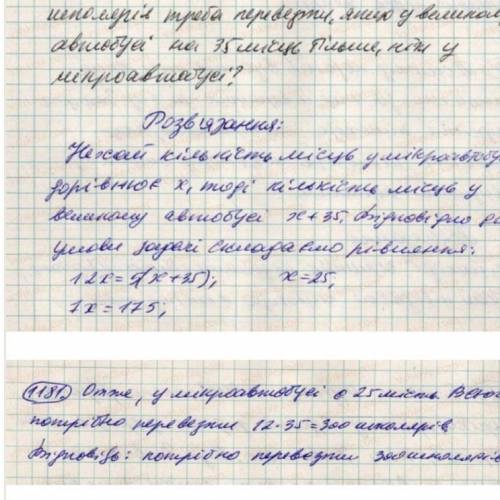 школярів треба перевезти, якщо у великому
автобусі на 35 місць більше, ніж у
мікроавтобусі?
Розв'язання:
Нехай кількість місць у мікроавтобу
дорівнює x, тоді кількість місць у
великому автобусі x+35. Відповідно до
умови задачі складаємо рівняння:
12x=5(x+35); x=25,
7x=175;
1181. Отже, у мікроавтобусі є 25 місць. Всього
потрібно перевезти 12·35=300 школярів
Відповідь: потрібно перевезти 300 школярів